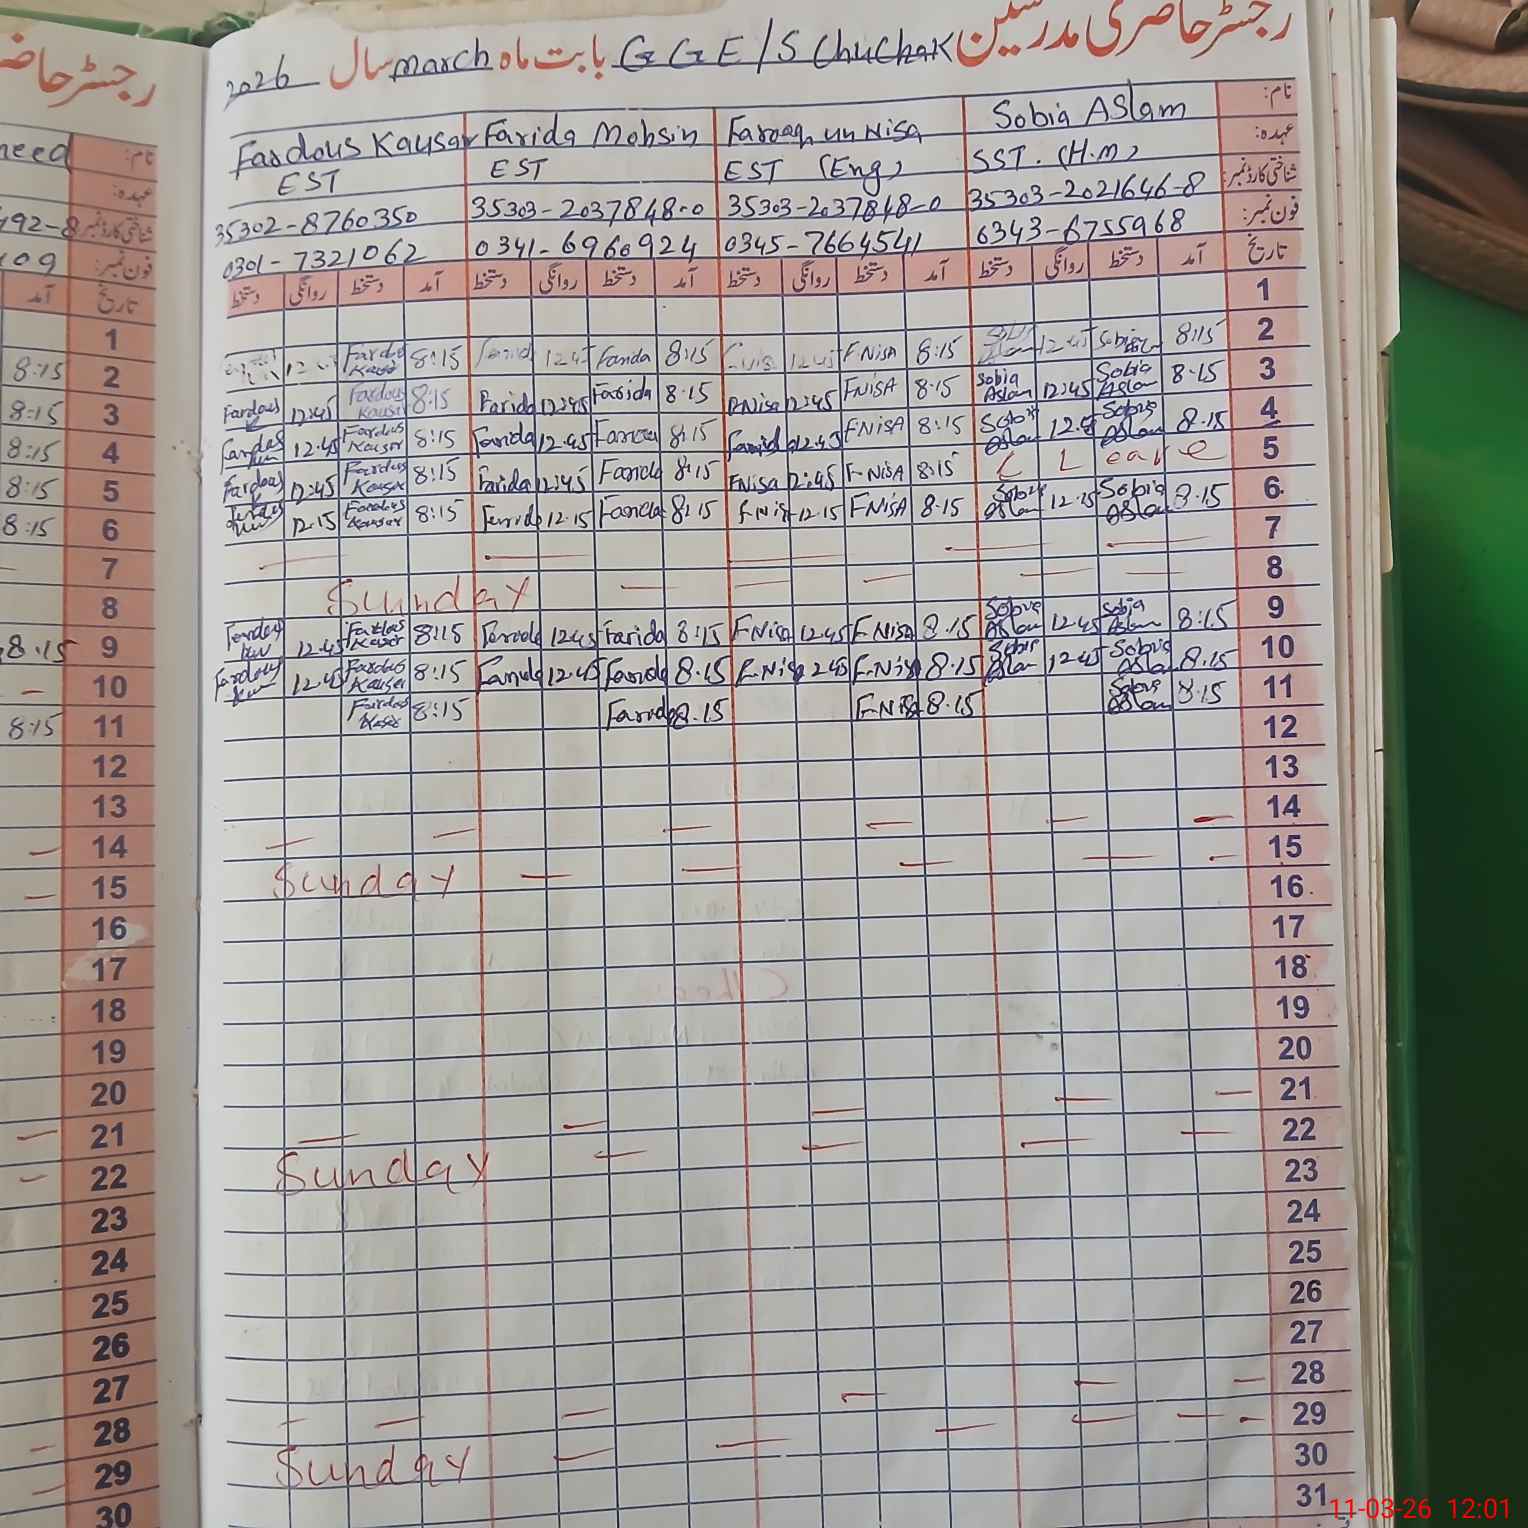 رجسٹر حاضری مدرسین GGE/S Chuchak بابت ماہ march سال 2026
نام: Sobia Aslam Farooq un Nisa Farida Mohsin Fardous Kausar
عہدہ: SST. (H.m) EST (Eng) EST EST
شناختی کارڈ نمبر: 35303-2021646-8 35303-2037848-0 35303-2037848-0 35302-8760350
فون نمبر: 0343-6755968 0345-7664541 0341-6960924 0301-7321062
تاریخ آمد دستخط روانگی دستخط آمد دستخط روانگی دستخط آمد دستخط روانگی دستخط آمد دستخط روانگی دستخط
1
2 8:15 Sobia Aslam 12:45 Aslam 8:15 F.NisA 12:45 8:15 Farida 12:45 Farida 8:15 Fardous Kausar
3 8.15 Sobia Aslam 12:45 Sobia Aslam 8.15 FNISA 12:45 FNisa 8.15 Farida 12:45 Farida 8:15 Fardous Kausar 12:45 Fardous
4 8.15 Sobia Aslam Sobia Aslam 8:15 FNISA 12.45 Farida 8:15 Farida 12.45 Farida 8:15 Fardous Kausar 12.45 Fardous
5 Leave 8:15 F.NisA 12:45 FNisa 8.15 Farida 12:45 Farida 8:15 Fardous Kauser 12:45 Fardous
6 8.15 Sobia Aslam 12.15 Sobia Aslam 8.15 FNisA 12.15 F.Nisa 8:15 Farida 12.15 Farida 8:15 Fardous Kausar 12.15
7
8 Sunday
9 8:15 Sobia Aslam 12.45 Sobia Aslam 8.15 F.NisA 12.45 FNisa 8:15 Farida 12:45 Farida 8:15 Fardous Kauser 12.45 Fardous
10 8.15 Sobia Aslam 12.45 Sobia Aslam 8.15 F.Nisa 2.45 F.Nisa 8.15 Farida 12.45 Farida 8:15 Fardous Kauser 12.45 Fardous
11 8.15 Sobia Aslam 8.15 F.NisA 8.15 Farida 8:15 Fardous Kaser
12
13
14
15 Sunday
16
17
18
19
20
21
22 Sunday
23
24
25
26
27
28
29 Sunday
30
31
رجسٹر حاض
need نام:
عہدہ:
492-8 شناختی کارڈ نمبر:
09 فون نمبر:
آمد تاریخ
1
8:15 2
8:15 3
8:15 4
8:15 5
8:15 6
7
8
8.15 9
10
8:15 11
12
13
14
15
16
17
18
19
20
21
22
23
24
25
26
27
28
29
30
11-03-26 12:01